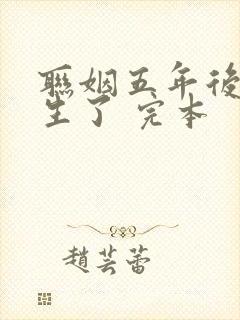 聯姻五年後
生了 完本
趙芸蕾